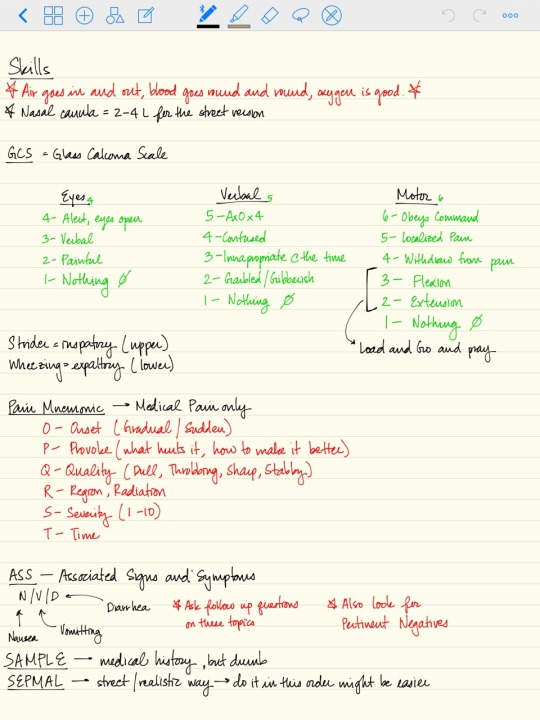 Skills
☆ Air goes in and out, blood goes round and round, oxygen is good. ☆
☆ Nasal canula = 2-4 L for the street version
GCS = Glass Calcoma Scale
Eyes 4
4- Alert, eyes open
3- Verbal
2- Painful
1- Nothing Ø
Verbal 5
5-AxO x 4
4-Confused
3-Innapropriate c the time
2- Garbled/Gibberish
1- Nothing Ø
Motor 6
6-Obeys Command
5- Localized Pain
4- Withdraw from pain
3- Flexion
2- Extension
1- Nothing Ø
Load and Go and pray
Strider = inspatory (upper)
Wheezing = expaltory (lower)
Pain Mnemonic → Medical Pain only
O- Onset (Gradual/Sudden)
P- Provoke (what hurts it, how to make it better)
Q- Quality (Dull, Throbbing, Sharp, Stabby)
R- Region, Radiation
S- Severity (1-10)
T- Time
ASS — Associated Signs and Symptoms
N/V/D ← Diarrhea
Nausea
Vomitting
☆ Ask follow up questions
on these topics
☆ Also look for
Pertinent Negatives
SAMPLE → medical history, but dumb
SEPMAL → street/realistic way → do it in this order might be easier